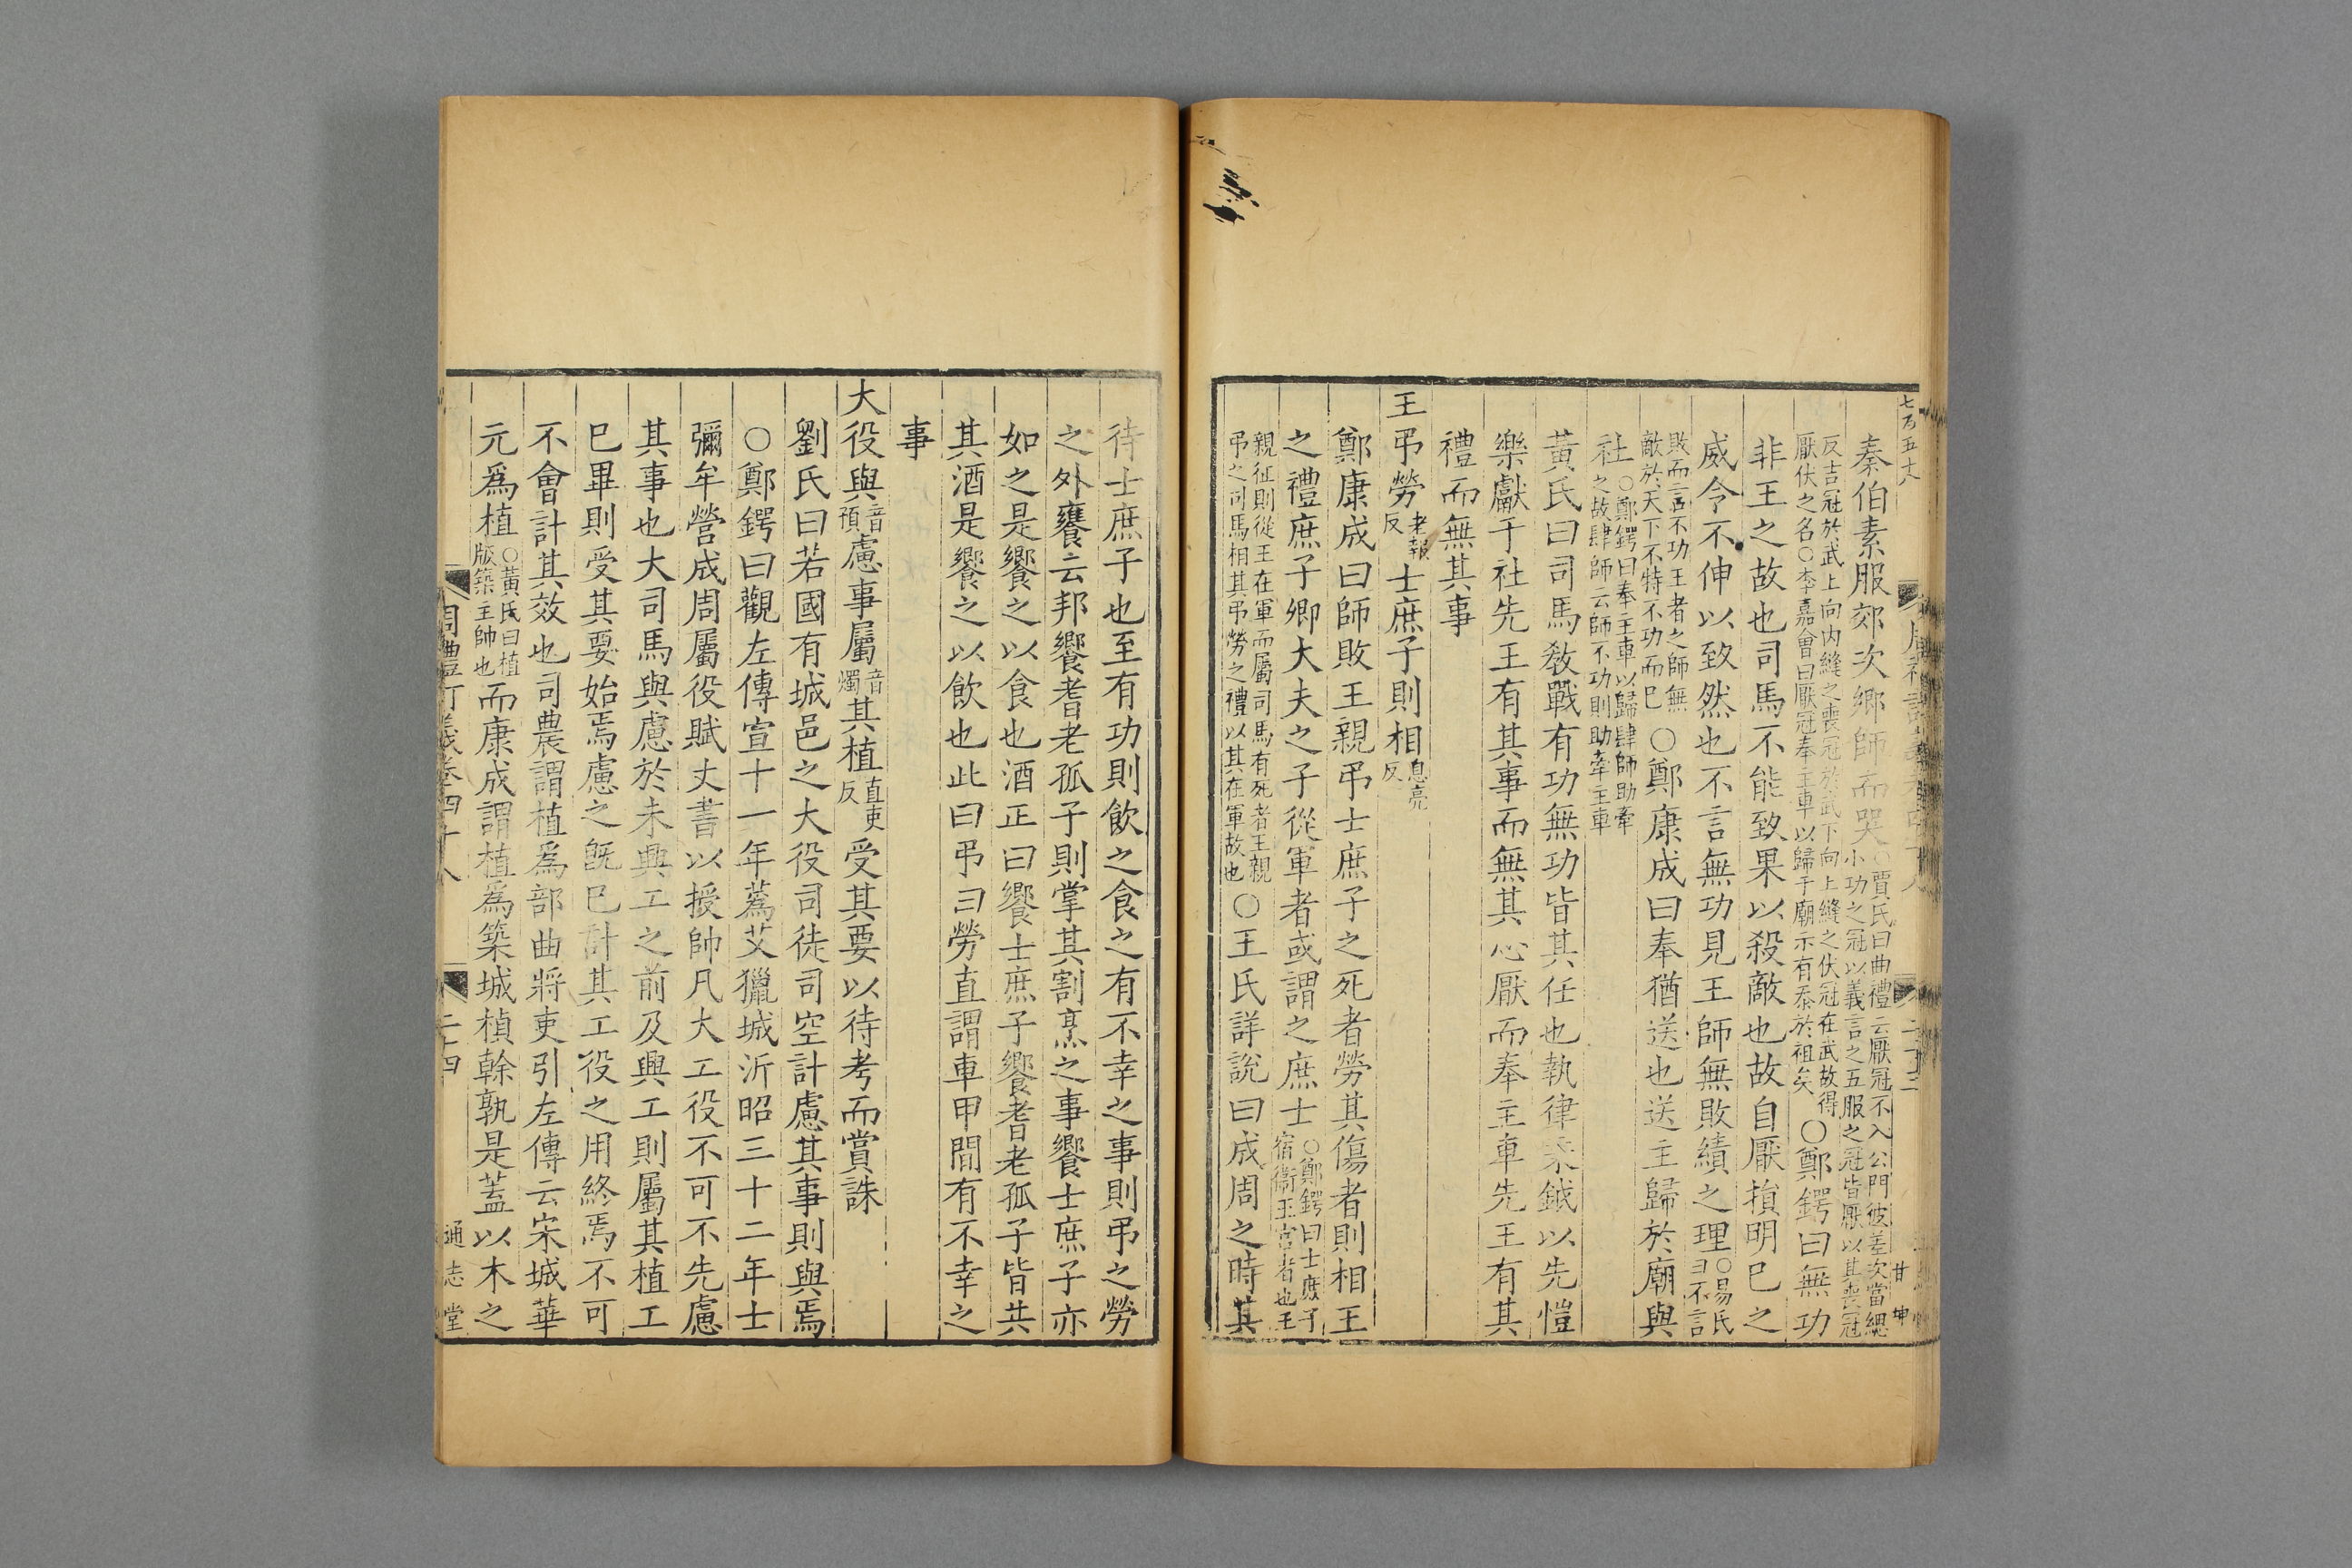 七百五十八
秦伯素服郊次鄉師而哭○賈氏曰曲禮云厭冠不入公門彼差次當緦小功之冠以義言之五服之冠皆厭以其喪冠
反吉冠於武上向内縫之喪冠於武下向上縫之伏冠在武故得厭伏之名○李嘉會曰厭冠奉主車以歸于廟示有忝於祖矣○鄭鍔曰無功
非王之故也司馬不能致果以殺敵也故自厭損明已之
威令不伸以致然也不言無功見王師無敗績之理○易氏曰不言
敗而言不功王者之師無敵於天下不特不功而已○鄭康成曰奉猶送也送主歸於廟與
社○鄭鍔曰奉主車以歸肆師助牽之故肆師云師不功則助牽主車
黃氏曰司馬敎戰有功無功皆其任也執律秉鉞以先愷
樂獻于社先王有其事而無其心厭而奉主車先王有其
禮而無其事
王弔勞老報反士庶子則相息亮反
鄭康成曰師敗王親弔士庶子之死者勞其傷者則相王
之禮庶子卿大夫之子從軍者或謂之庶士○鄭鍔曰士庶子宿衞王宮者也王
親征則從王在軍而屬司馬有死者王親弔之司馬相其弔勞之禮以其在軍故也○王氏詳說曰成周之時其
待士庶子也至有功則飲之食之有不幸之事則弔之勞
之外饔云邦饗耆老孤子則掌其割烹之事饗士庶子亦
如之是饗之以食也酒正曰饗士庶子饗耆老孤子皆共
其酒是饗之以飲也此曰弔曰勞直謂車甲間有不幸之
事
大役與音預慮事屬音燭其植直吏反受其要以待考而賞誅
劉氏曰若國有城邑之大役司徒司空計慮其事則與焉
○鄭鍔曰觀左傳宣十一年蒍艾獵城沂昭三十二年士
彌牟營成周屬役賦丈書以授帥凡大工役不可不先慮
其事也大司馬與慮於未興工之前及興工則屬其植工
巳畢則受其要始焉慮之旣巳計其工役之用終焉不可
不會計其效也司農謂植爲部曲將吏引左傳云宋城華
元爲植○黃氏曰植版築主帥也而康成謂植爲築城楨榦孰是蓋以木之
周禮訂義卷四十八
二十四
通志堂